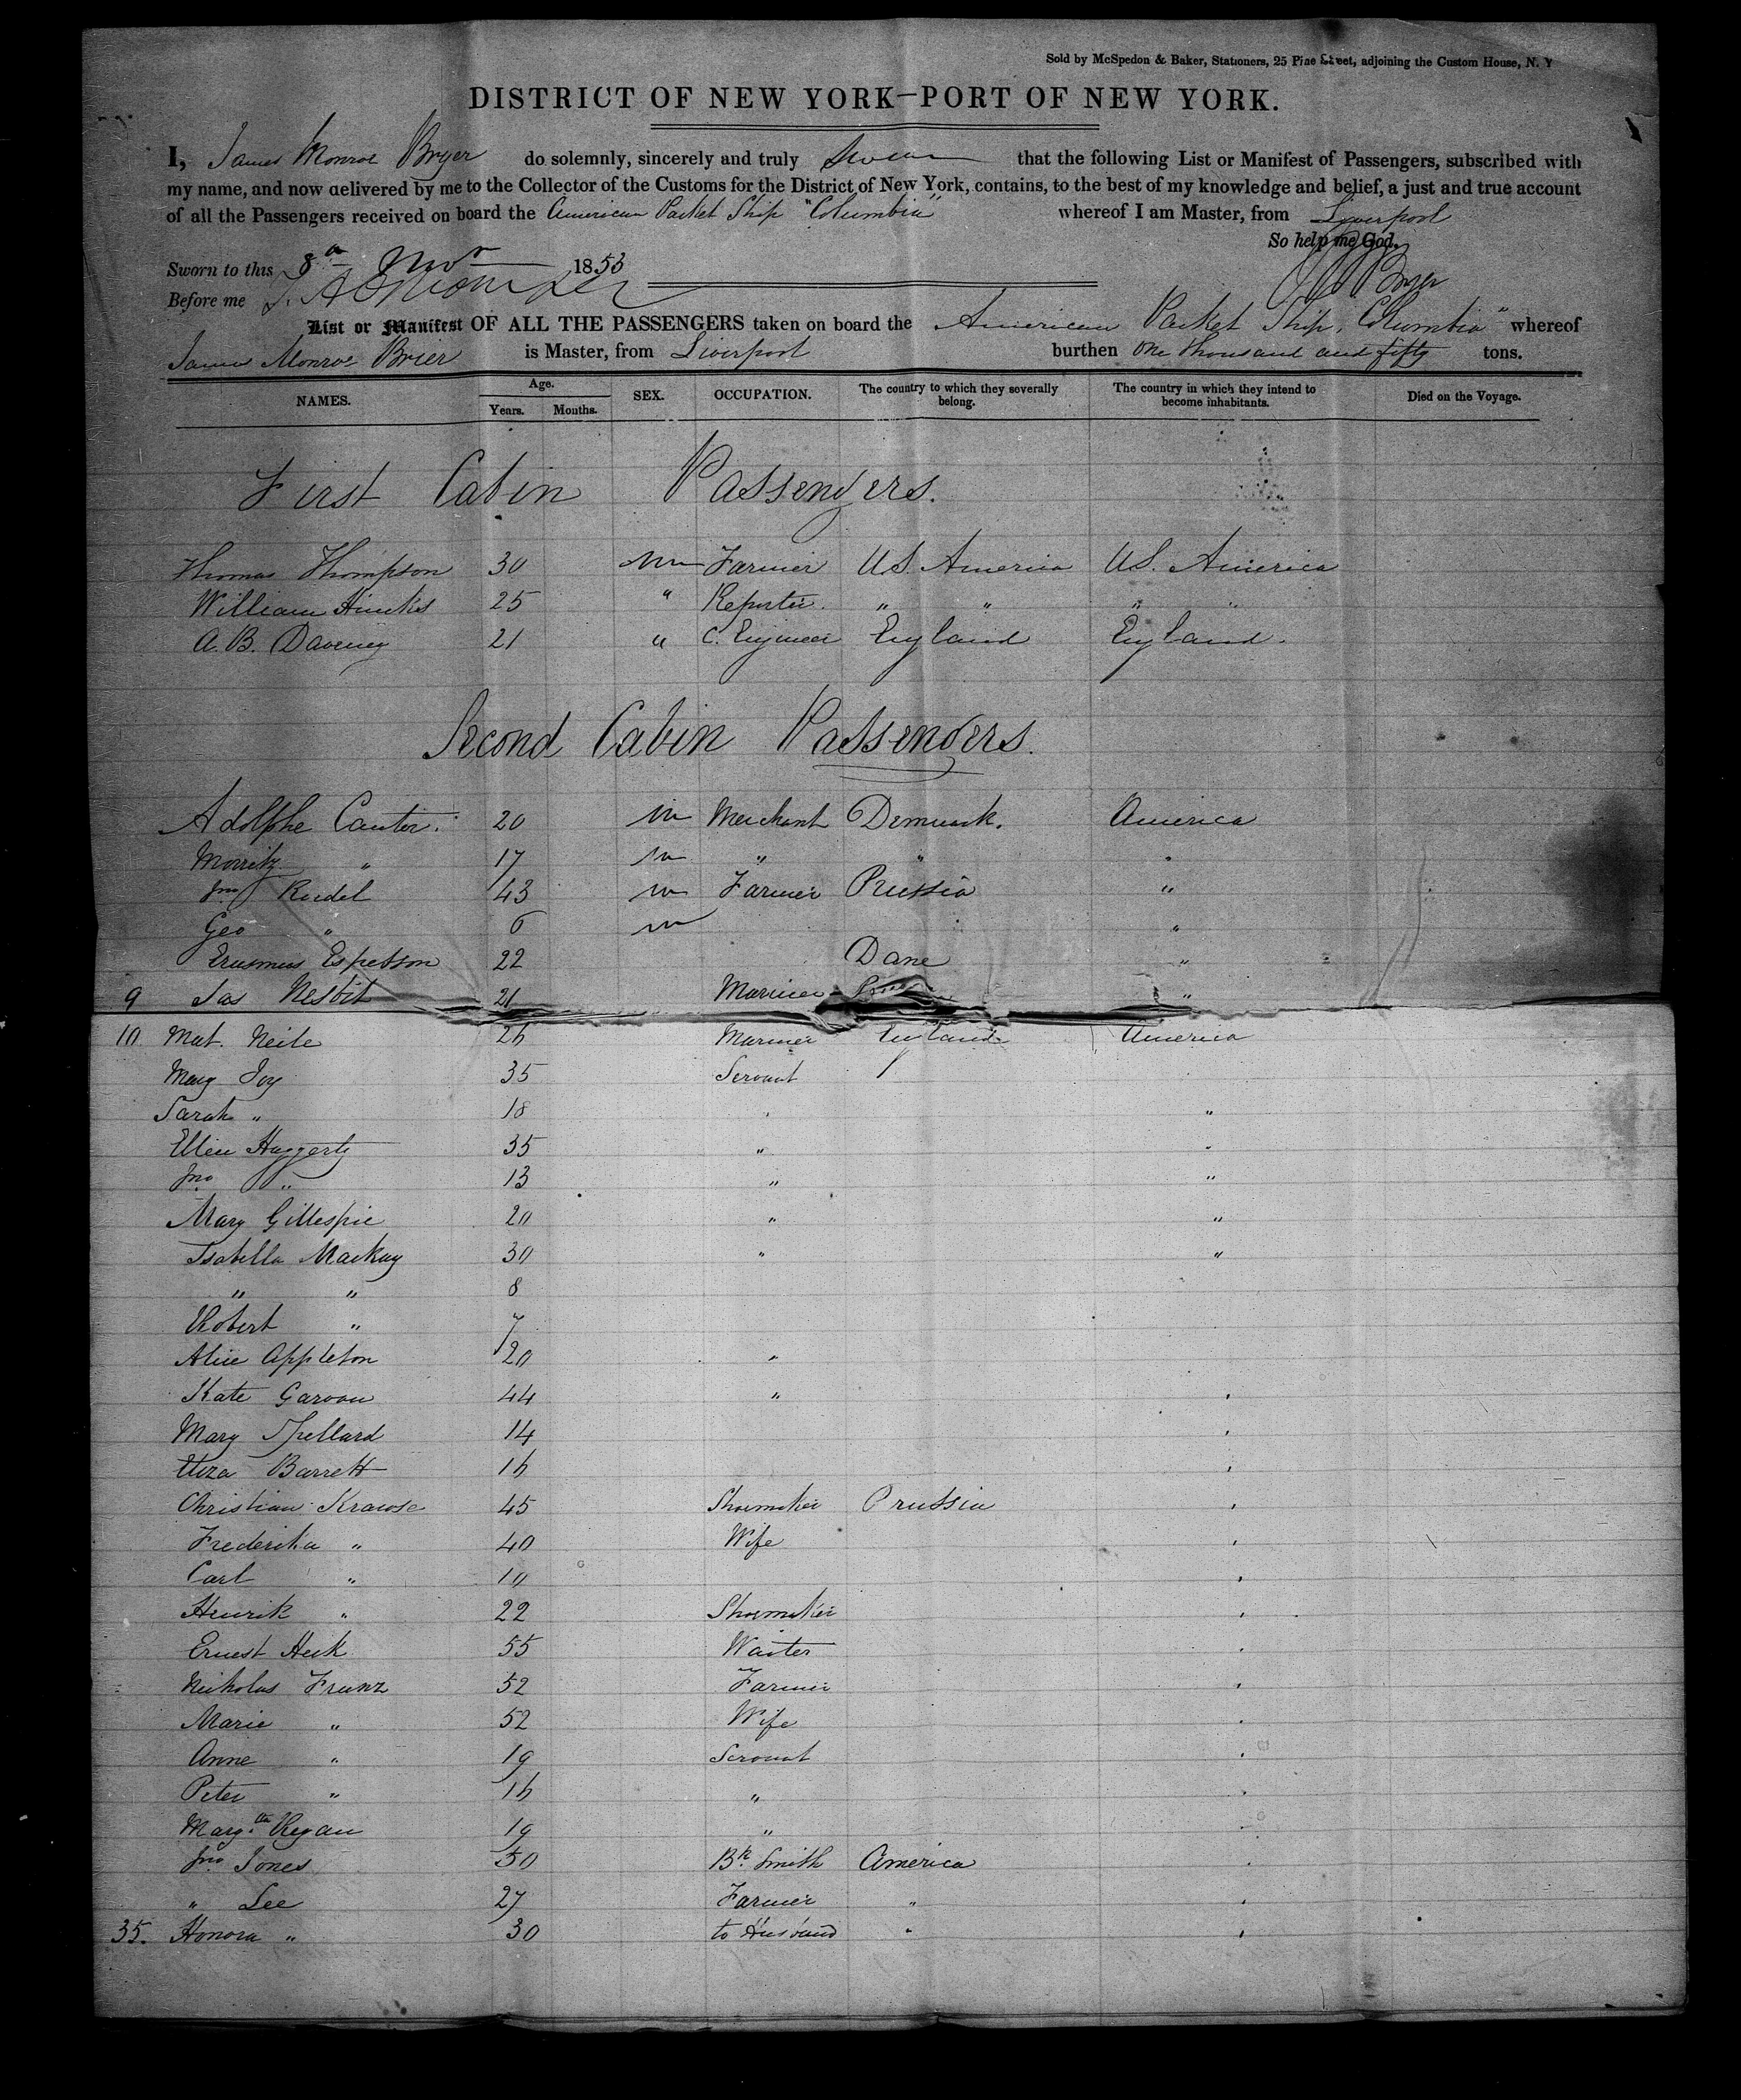 Sold by McSpedon & Baker, Stationers, 25 Pine Street, adjoining the Custom House, N. Y
DISTRICT OF NEW YORK—PORT OF NEW YORK.
I, James Monroe Bryer do solemnly, sincerely and truly Swear that the following List or Manifest of Passengers, subscribed with
my name, and now delivered by me to the Collector of the Customs for the District of New York, contains, to the best of my knowledge and belief, a just and true account
of all the Passengers received on board the American Packet Ship "Columbia" whereof I am Master, from Liverpool
So help me God.
Sworn to this 8th Nov 1853
Before me Bryer
List or Manifest OF ALL THE PASSENGERS taken on board the American Packet Ship, Columbia" whereof
James Monroe Brier is Master, from Liverpool burthen One thousand and fifty tons.
NAMES. Age. Years. Months. SEX. OCCUPATION. The country to which they severally belong. The country in which they intend to become inhabitants. Died on the Voyage.
First Cabin Passengers.
Thomas Thompson 30 m Farmer U.S. America U.S. America
William Hincks 25 " Reporter. " " " "
A. B. Daveney 21 " C. Engineer England England.
Second Cabin Passengers.
Adolphe Cantor. 20 m Merchant Denmark. America
Morritz " 17 m " " "
Jno Riedel 43 m Farmer Prussia "
Geo " 6 m "
Erasmus Espetson 22 Dane "
9 Jas Nesbit 21 Mariner "
10 Mat. Neile 26 Mariner England America
Mary Joy 35 Servant
Sarah " 18 " "
Ellen Haggerty 35 " "
Jno " 13 " "
Mary Gillespie 20 " "
Isabella Mackay 30 " "
" " 8 "
Robert " 7
Alice Appleton 20 "
Kate Garvan 44 " "
Mary Spellard 14 "
Eliza Barrett 16 "
Christian Krawse 45 Shoemaker Prussia "
Frederika " 40 Wife "
Carl " 10 "
Henrik " 22 Shoemaker "
Ernest Heck 55 Waiter "
Nicholas Frunz 52 Farmer "
Marie " 52 Wife "
Anne " 19 Servant "
Peter " 16 " "
Margtta Regan 19 " "
Jno Jones 50 Bk Smith America "
" Lee 27 Farmer " "
35. Honora " 30 to Husband " "